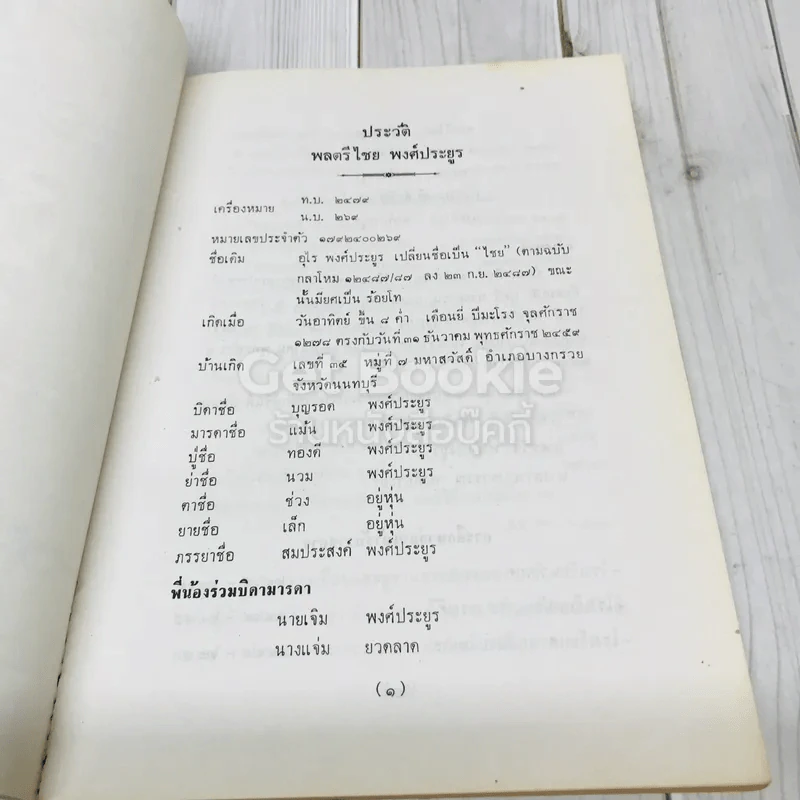 ประวัติ
พลตรีไชย พงศ์ประยูร
เครื่องหมาย ท.บ. ๒๔๗๙
น.บ. ๒๖๙
หมายเลขประจำตัว ๑๗๙๒๔๐๐๒๖๙
ชื่อเดิม อุไร พงศ์ประยูร เปลี่ยนชื่อเป็น "ไชย" (ตามฉบับ
กลาโหม ๑๒๔๘๗/๘๗ ลง ๒๓ ก.ย. ๒๔๘๗) ขณะ
นั้นมียศเป็น ร้อยโท
เกิดเมื่อ วันอาทิตย์ ขึ้น ๘ ค่ำ เดือนยี่ ปีมะโรง จุลศักราช
๑๒๗๘ ตรงกับวันที่ ๓๑ ธันวาคม พุทธศักราช ๒๔๕๙
บ้านเกิด เลขที่ ๓๕ หมู่ที่ ๗ มหาสวัสดิ์ อำเภอบางกรวย
จังหวัดนนทบุรี
บิดาชื่อ บุญรอด พงศ์ประยูร
มารดาชื่อ แม้น พงศ์ประยูร
ปู่ชื่อ ทองดี พงศ์ประยูร
ย่าชื่อ นวม พงศ์ประยูร
ตาชื่อ ช่วง อยู่หุ่น
ยายชื่อ เล็ก อยู่หุ่น
ภรรยาชื่อ สมประสงค์ พงศ์ประยูร
พี่น้องร่วมบิดามารดา
นายเจิม พงศ์ประยูร
นางแจ่ม ยวดลาด
(๑)
Get Bookie
ร้านหนังสือบุ๊คกี้